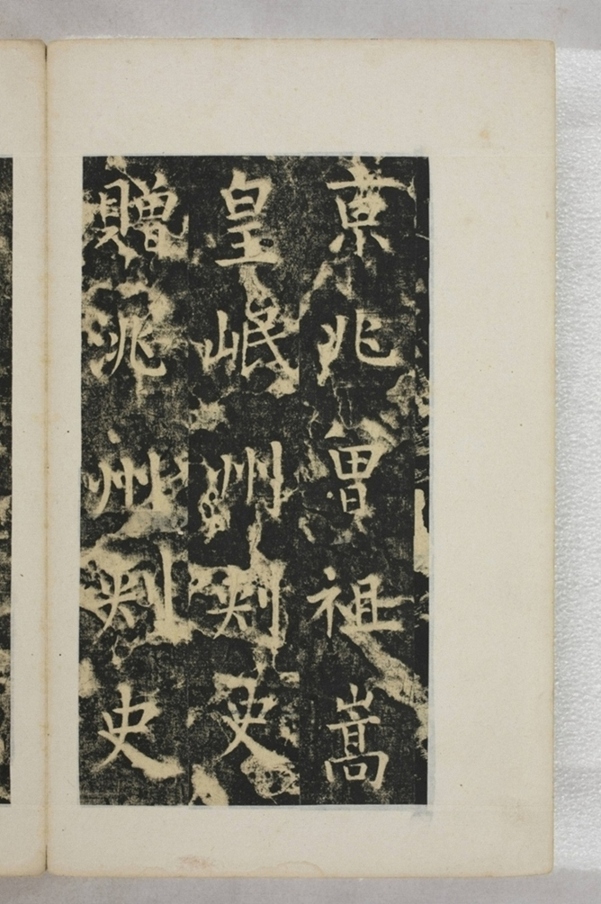 京兆曾祖嵩
皇岷州刺史
贈洮州刺史